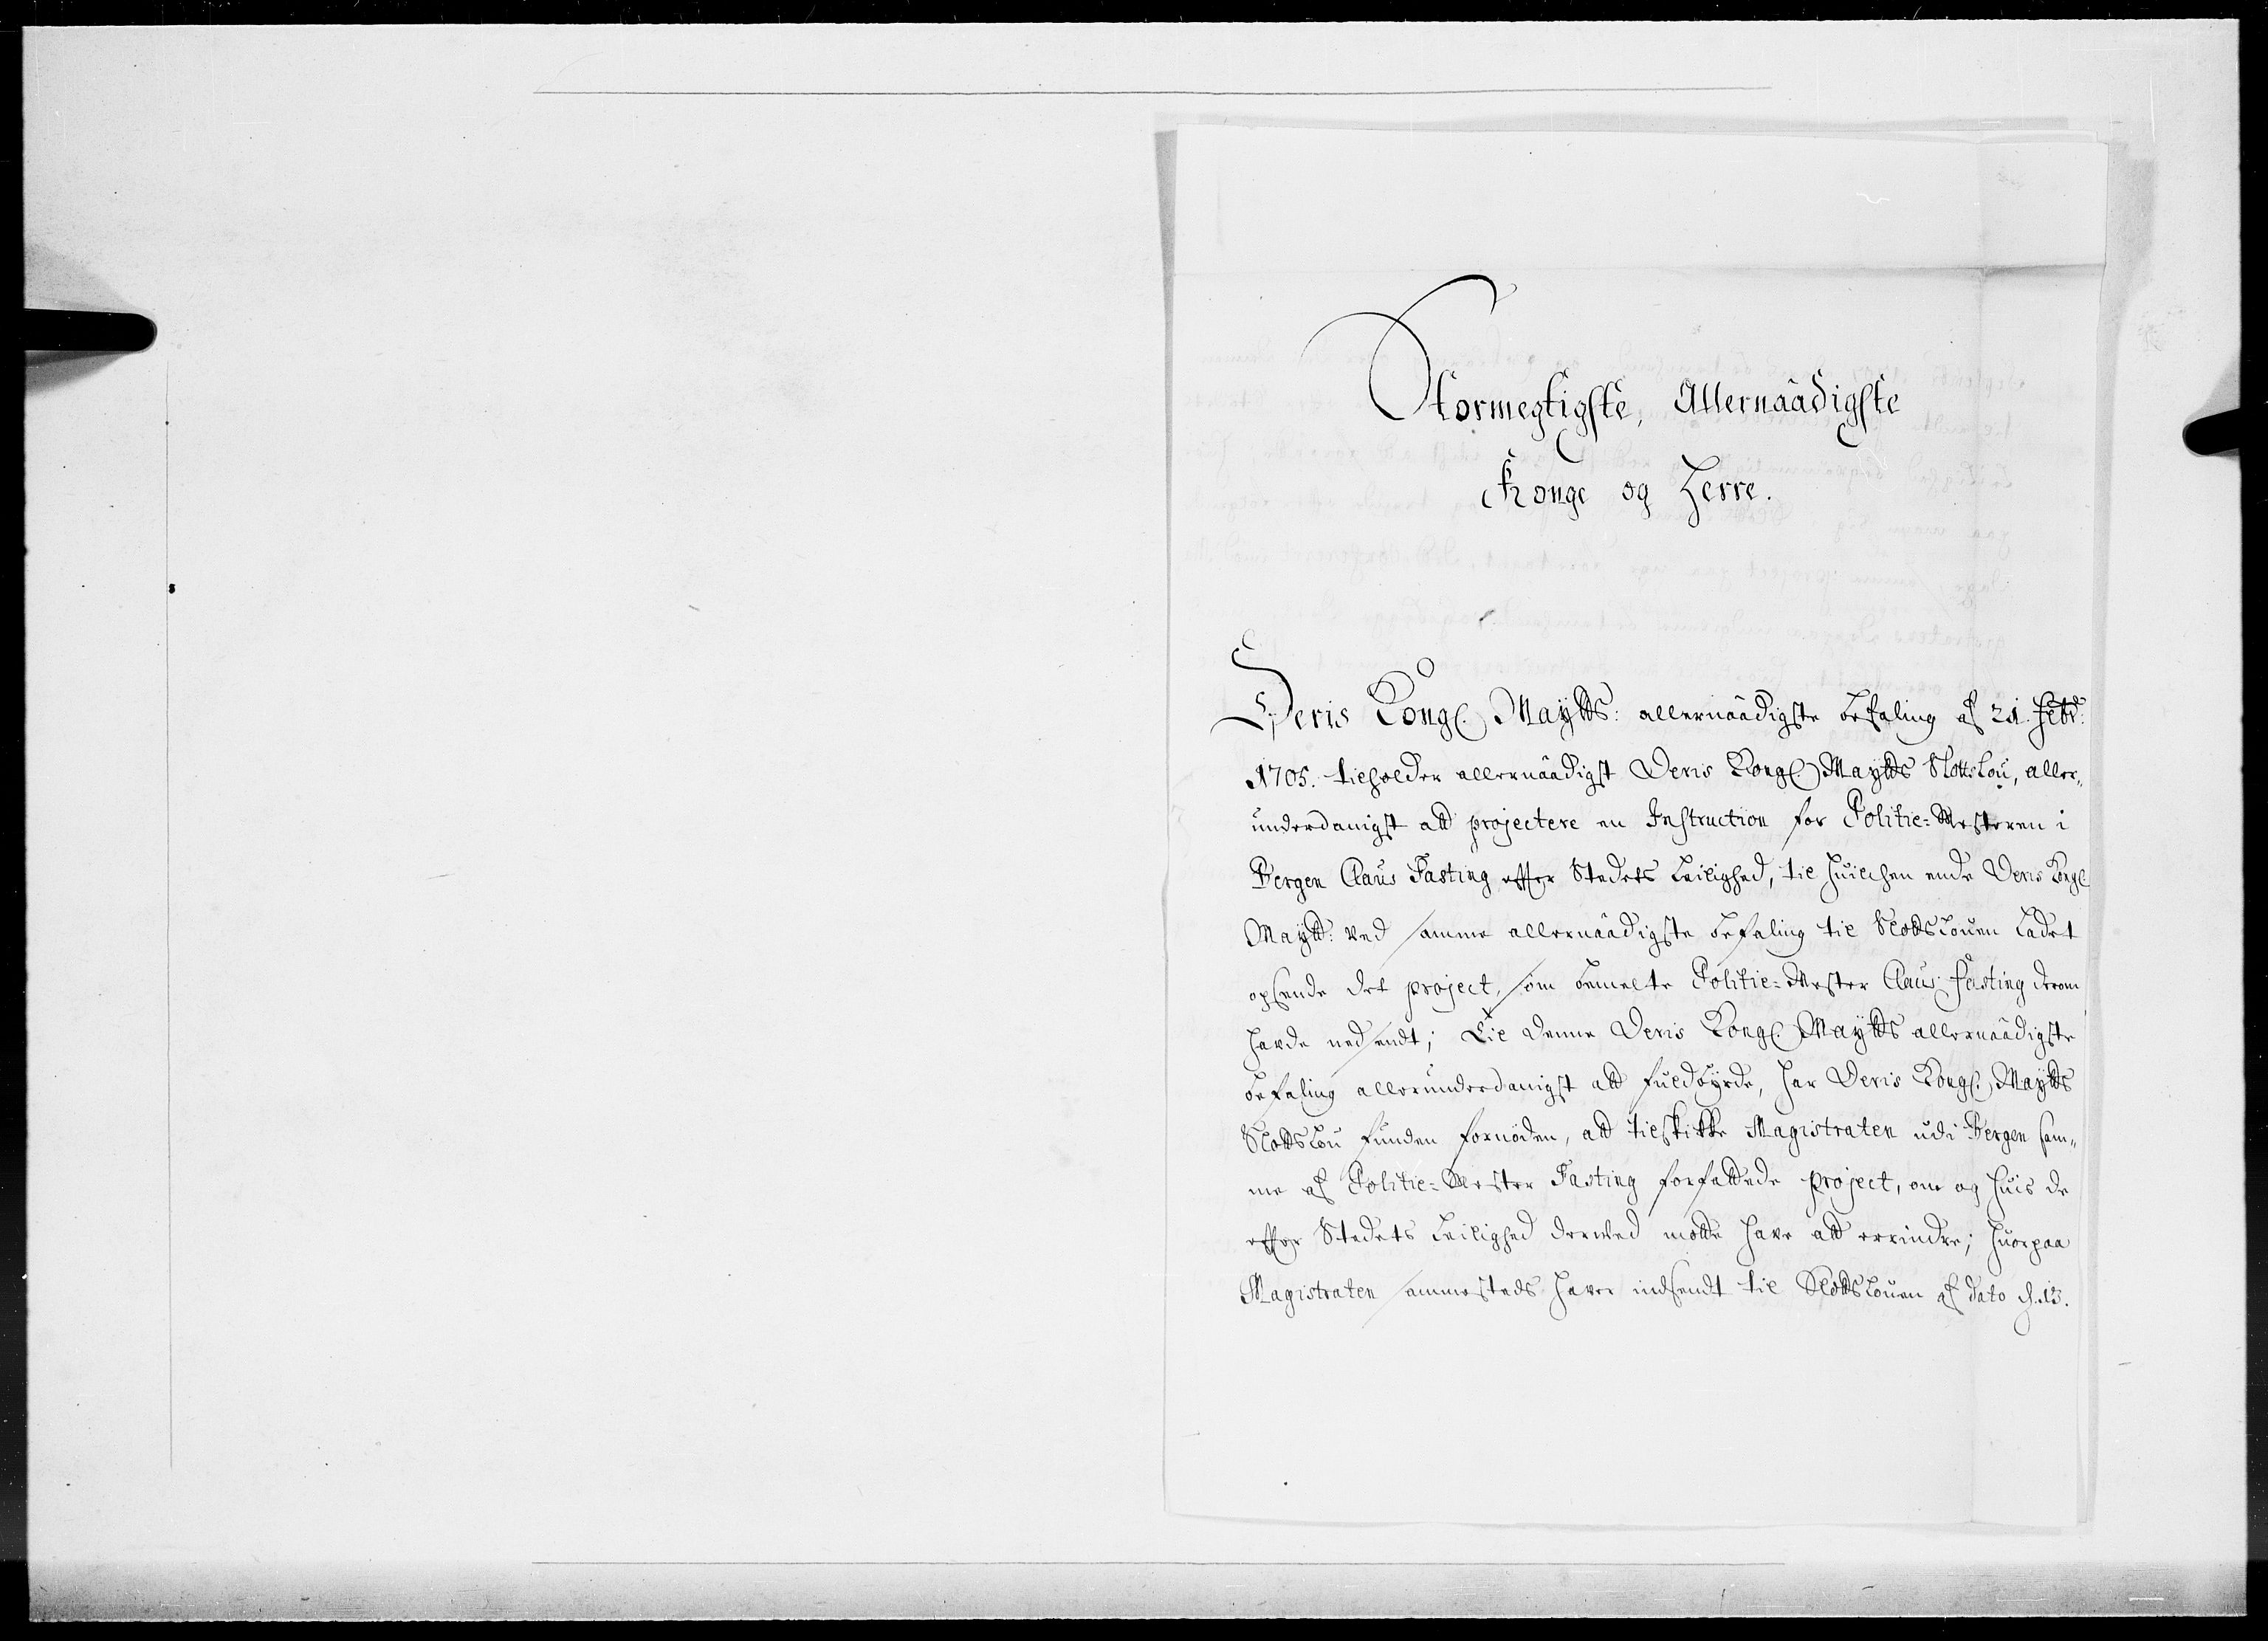 Stormegtigste, Allernaadigste
Konge og Herre.
Deris Kongl. Maytts: allernaadigste befaling af 21. Febr:
1705. tilholder allernaadigst Deris Kongl. Maytts Slottslou, aller„
underdanigst att projectere en Instruction for Politie=Mesteren i
Bergen Claus Fasting effter Stedets Leilighed, til huilchen ende Deris Kongl.
Maytt: ved samme allernaadigste befaling til Slottslouen ladet
opsende det project, som bemelte Politie=Mester Claus Fasting derom
hafde nedsendt; Til denne Deris Kongl. Maytts allernaadigste
befaling allerunderdanigst att fuldbyrde, har Deris Kongl. Maytts
Slottslou funden fornöden, att tilskikke Magistraten udi Bergen sam„
me af Politie=Mester Fasting forfattede project, om og huis de
effter Stedets Leilighed derved motte have att errindre; huorpaa
Magistraten sammesteds haver indsendt til Slottslouen af dato d. 13.